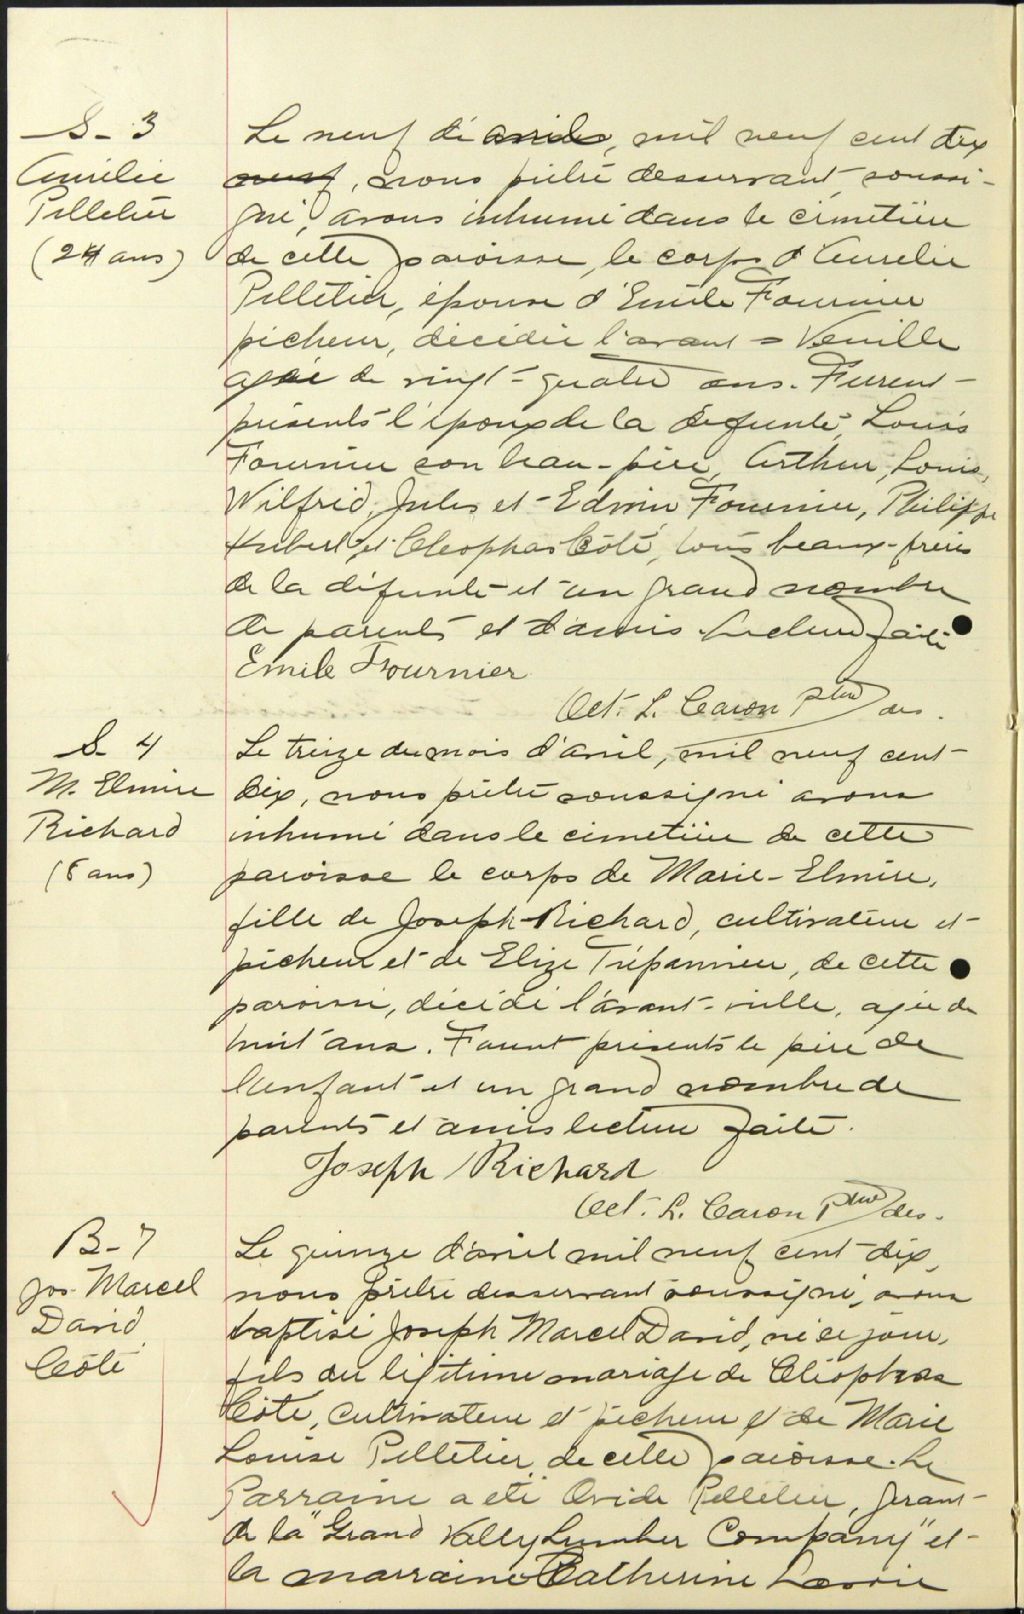 S- 3
Aurélie
Pelletier
(24 ans)
Le neuf de avril, mil neuf cent dix
neuf, nous prêtre desservant soussi-
gné, avons inhumé dans le cimetière
de cette paroisse, le corps d'Aurélie
Pelletier, épouse d'Emile Fournier
pêcheur, décédée l'avant = Veuille
agée de vingt-quatre ans. Furent
présents l'époux de la défunte, Louis
Fournier son beau-père, Arthur, Louis,
Wilfrid, Jules et Edwin Fournier, Philippe
Hubert, et Cleophas Côté, tous beaux-frères
de la défunte et un grand nombre
de parents et d'amis. Lecture faite
Emile Fournier
Oct. L. Caron Ptre des.
S- 4
M. Elmire
Richard
(8 ans)
Le treize du mois d'avril, mil neuf cent
dix, nous prêtre soussigné avons
inhumé dans le cimetière de cette
paroisse le corps de Marie-Elmire,
fille de Joseph Richard, cultivateur et
pêcheur et de Elize Trépannier, de cette
paroisse, décédé l'avant-veille, agée de
huit ans. Furent présents le père de
l'enfant et un grand nombre de
parents et amis lecture faite.
Joseph Richard
Oct. L. Caron Ptre des.
B- 7
Jos. Marcel
David
Côté
Le quinze d'avril mil neuf cent dix,
nous prêtre desservant soussigné, avons
baptisé Joseph Marcel David, né ce jour,
fils du légitime mariage de Cléophas
Côté, cultivateur et pêcheur et de Marie
Louise Pelletier de cette paroisse. Le
Parraine a été Ovide Pelletier, gérant
de la "Grand Vally Lumber Company" et
la marraine Catherine Lavoie